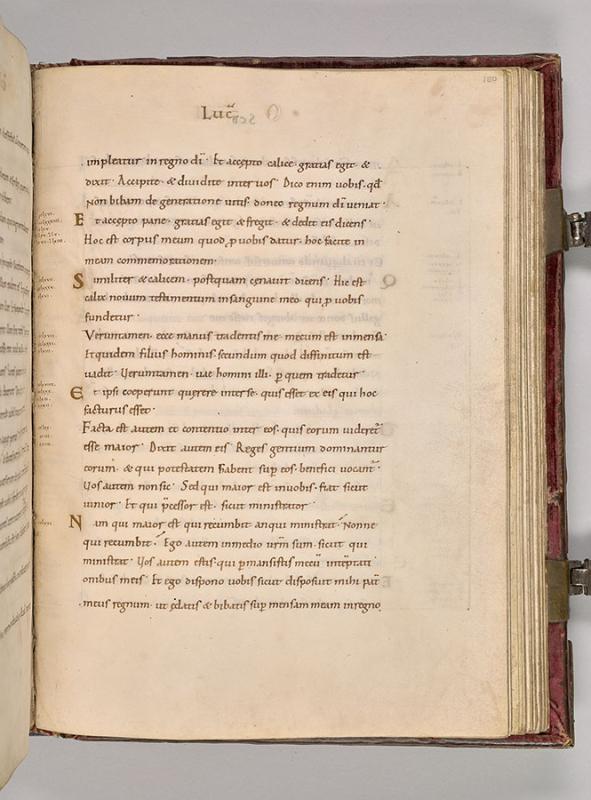 180
Luc̄
impleatur in regno dī· Et accepto calice gratias egit &
dixit· Accipite & diuidite inter uos· Dico enim uobis· qđ
Non bibam de generatione uitis· donec regnum dī ueniat·
Et accepto pane· gratias egit & fregit· & dedit eis dicens·
Hoc est corpus meum quod ꝓ uobis datur· hoc facite in
meam commemorationem·
Similiter & calicem· postquam cenauit dicens· Hic est
calix nouum testamentum in sanguine meo· qui ꝓ uobis
fundetur·
Veruntamen· ecce manus tradentis me· mecum est in mensa·
Et quidem filius hominis· secundum quod diffinitum est·
uadit· Veruntamen· uae homini illi· ꝑ quem tradetur·
Et ipsi coeperunt quęrere inter se· quis esset ex eis qui hoc
facturus esset·
Facta est autem et contentio inter eos· quis eorum uideret̄
esse maior· Dixit autem eis· Reges gentium dominantur
eorum· & qui potestatem habent sup̄ eos· benefici uocant̄·
Vos autem non sic· Sed qui maior est in uobis· fiat sicut
iunior· Et qui p̄cessor est· sicut ministrator·
Nam qui maior est qui recumbit· an qui ministrat· Nonne
qui recumbit· Ego autem in medio ur̄m sum· sicut qui
ministrat· Vos autem estis· qui ꝑmansistis mecū in tēptati
onibus meis· Et ego dispono uobis sicut disposuit mihi pat̄
meus regnum· ut ędatis & bibatis sup̄ mensam meam in regno